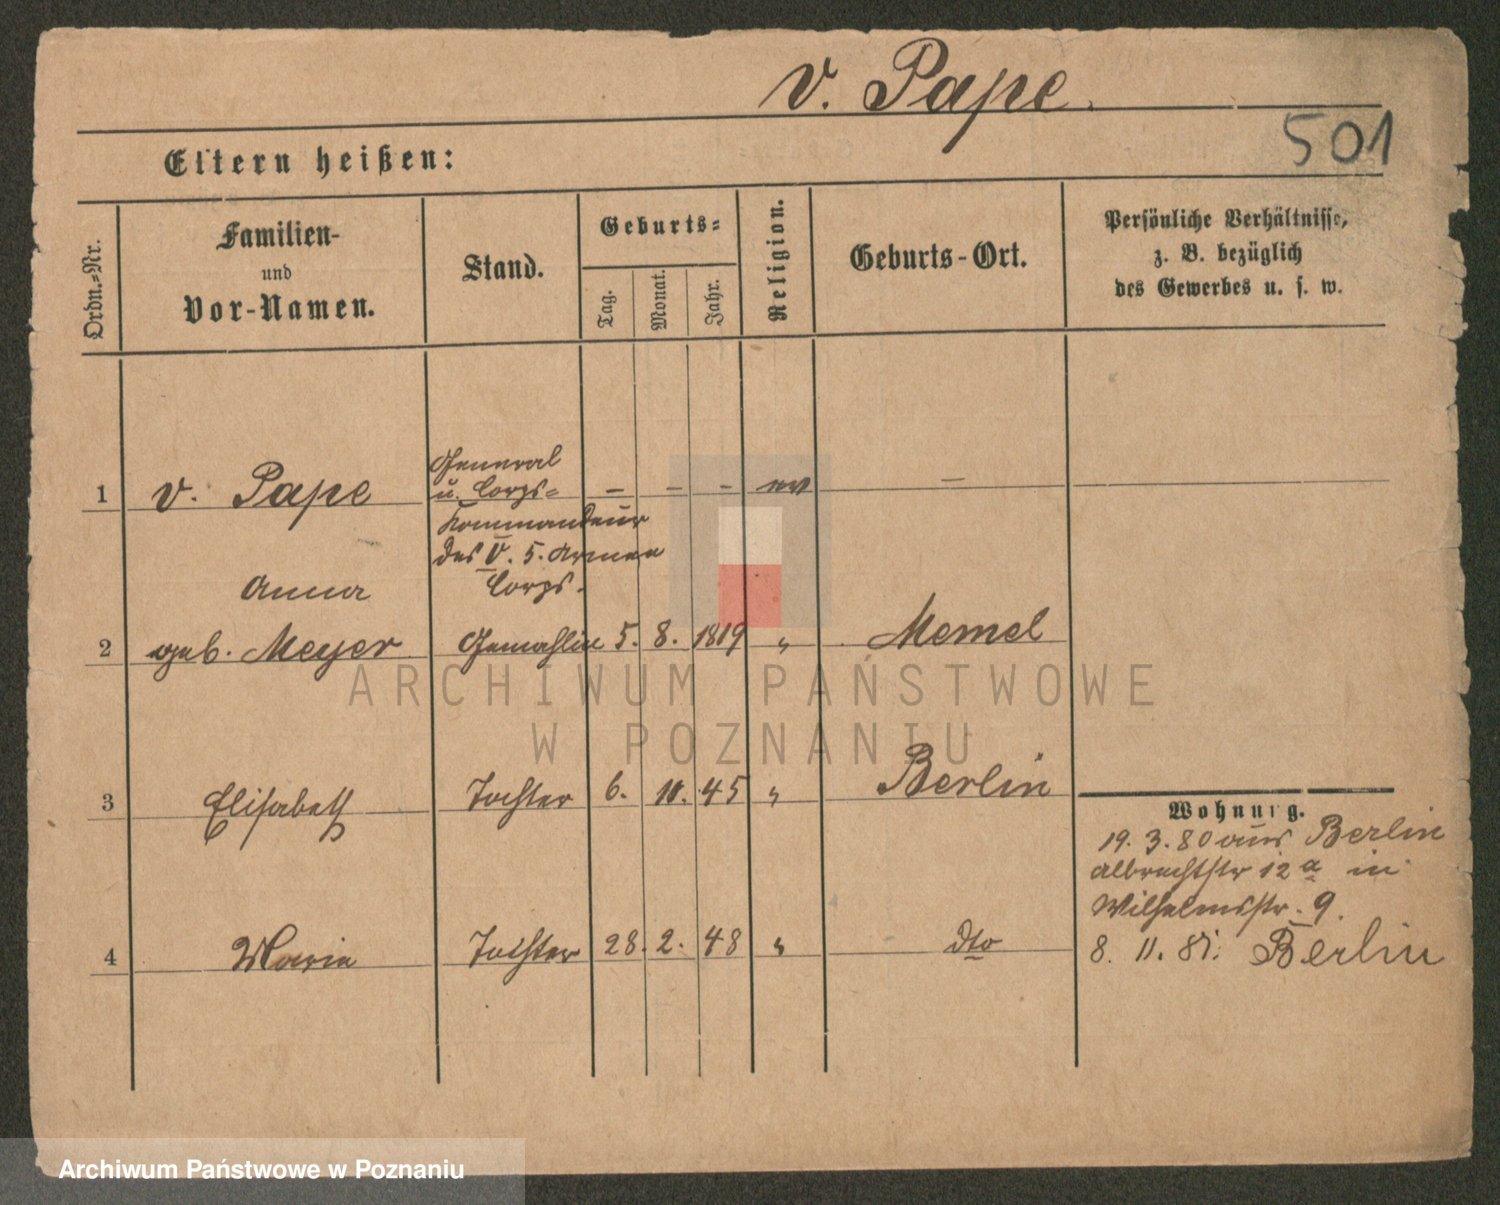 v. Pape.
501
Eltern heißen:
Ordn.-Nr.
Familien-
und
Vor-Namen.
Stand.
Geburts-
Tag.
Monat.
Jahr.
Religion.
Geburts-Ort.
Persönliche Verhältnisse,
z. B. bezüglich
des Gewerbes u. s. w.
1 v. Pape General – – – ev –
u. Corps-
Kommandeur
des V. 5. Armee
Corps.
Anna
2 geb. Meyer Gemahlin 5. 8. 1819 " Memel
ARCHIWUM PAŃSTWOWE
W POZNANIU
3 Elisabeth Tochter 6. 11. 45 " Berlin
Wohnung.
19. 3. 80 aus Berlin
Albrechtstr 12a in
Wilhelmsstr. 9.
4 Marie Tochter 28. 2. 48 " dto
8. 11. 81. Berlin
Archiwum Państwowe w Poznaniu